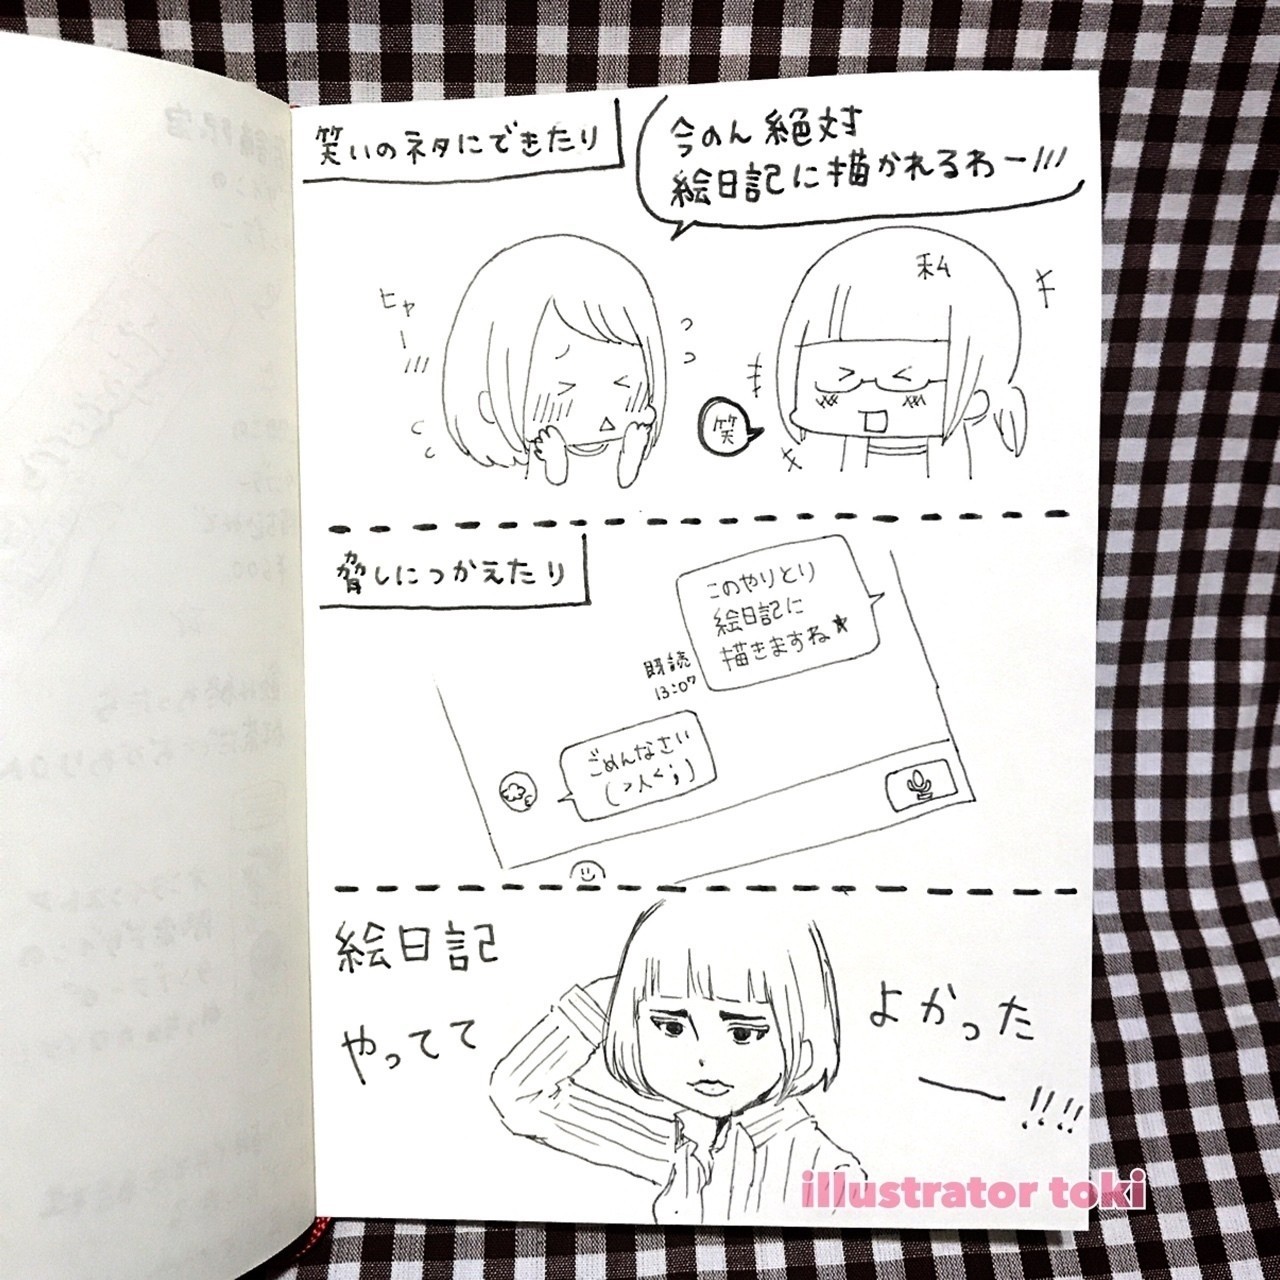 笑いのネタにできたり
今のん絶対
絵日記に描かれるわー!!!
ヒャー!!!
私
笑
脅しにつかえたり
このやりとり
絵日記に
描きますね★
既読
13:07
ごめんなさい
(>人<;)
絵日記
やってて
よかった
ー!!!!
illustrator toki